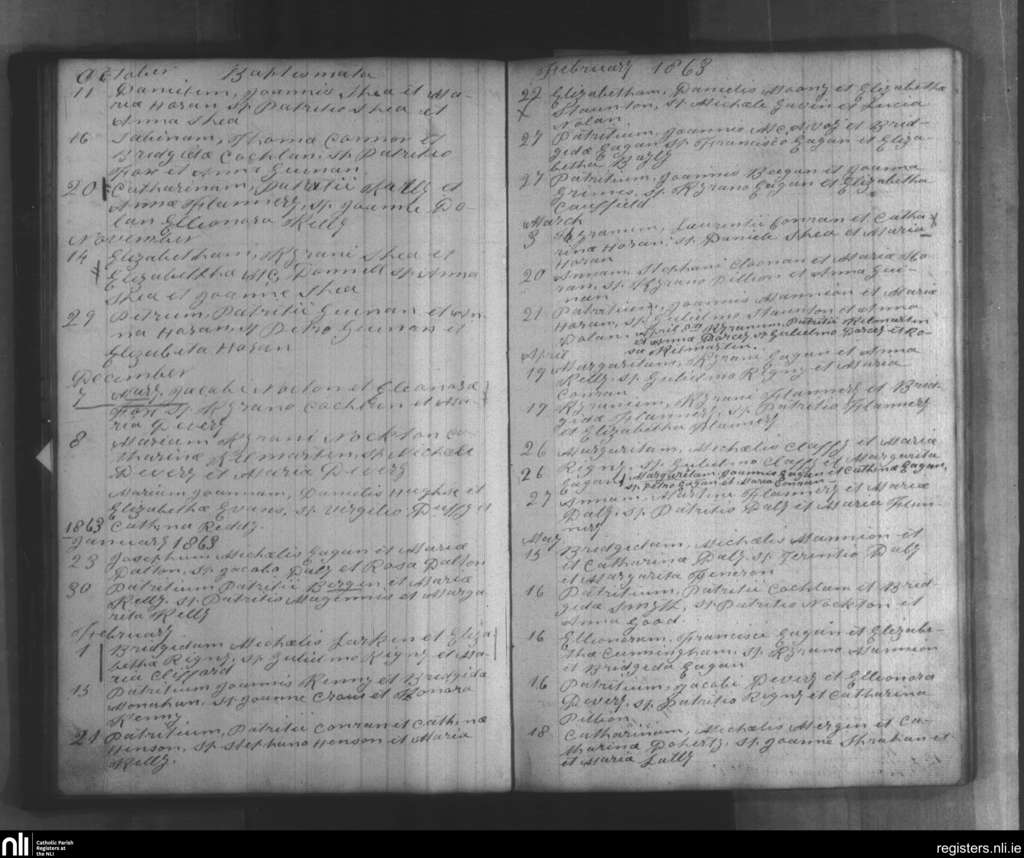 October Baptismata
11 Danielem, Joannis Shea et Ma-
ria Horan Sp Patritio Shea et
Anna Shea
16 Sabinam, Thoma Connor et
Bridgida Coghlan, Sp. Patritio
Fox et Anna Guinan
20 Catharinam, Patritii Kelly et
Anna Flannery, Sp. Joanne Do-
lan Elleonora Kelly
November
14 Elizabetham, Kyrani Shea et
Elizabetha McDonnell Sp. Anna
Shea et Joanne Shea
29 Petrum, Patritii Guinan et An-
na Horan, Sp Petro Guinan et
Elizabeta Horan
December
7 Mary, Jacobi Nocton et Eleonora
Fox Sp. Kyrano Coghlan et Ma-
ria Devery
8 Mariam Kyrani Nockton Ca-
tharina Kilmartin, Sp. Michæle
Devery et Maria Devery
Mariam Joannam, Danielis Hughse et
Elizabetha Evans, Sp. Virgilio Duffy et
1863 Cathrna Reddy.
January 1863
23 Josephum Michælis Gagan et Maria
Dalton, Sp. Jacobo Daly et Rosa Dalton
30 Patritium Patritii Bergin et Maria
Kelly, Sp. Patritio Maginnis et Marga-
rita Kelly
February
1 Bridgidam Michælis Larkin et Eliza-
betha Rigny, Sp. Gulielmo Rigny et Ma-
ria Clifford
13 Patritium Joannis Kenny et Bridgida
Monahan, Sp. Joanne Crow et Honora
Kenny
21 Patritium, Patritii Conran et Cathrna
Henson, Sp. Stephano Henson et Maria
Kelly.
February 1863
22 Elizabetham, Danielis Moony et Elizabetha
Staunton, Sp. Michæle Guerin et Lucia
Nolan
27 Patritium, Joannis McAvoy et Brid-
gida Gagan Sp. Francisco Gagan et Eliza-
betha Bayly
27 Patritium, Joannis Bergan et Joanna
Grimes, Sp. Kyrano Gagan et Elizabetha
Caulfield
March
3 Kyranum, Laurentii Conran et Catha-
rina Horan, Sp. Daniele Shea et Maria
Horan
20 Annam, Stephani Noonan et Maria Ho-
ran, Sp. Kyrano Pillion et Anna Gui-
nan
21 Patritium, Joannis Mannion et Maria
Horan, Sp. Gulielmo Staunton et Anna
Dolan. April Kyranum, Patritii Kilmartin
et Anna Darcy, Sp. Gulielmo Darcy et Ro-
sa Kilmartin.
April
19 Margaritam, Kyrani Gagan et Anna
Kelly, Sp. Gulielmo Rigny et Maria
Conran
17 Kyranum, Kyrani Flannery et Brid-
gida Flannery, Sp. Patritio Flannery
et Elizabetha Flannery
26 Margaritam, Michælis Claffy et Maria
Rigny, Sp. Gulielmo Claffy et Margarita
26 Gagan Margaritam, Joannis Gagan et Cathrna Gagan,
Sp. Petro Gagan et Maria Conran
27 Annam, Martini Flannery et Maria
Daly, Sp. Patritio Daly et Maria Flan-
nery
May
15 Bridgidam, Michælis Mannion et
et Catharina Daly, Sp. Terentio Daly
et Margarita
16 Patritium, Patritii Coghlan et Brid-
gida Smyth, Sp. Patritio Nockton et
Anna Good
16 Ellionoram, Francisci Gagan et Elizabe-
tha Cunningham, Sp. Kyrano Mannion
et Bridgida Gagan
16 Patritium, Jacobi Devery et Elleonora
Devery, Sp. Patritio Rigny et Catharina
Pillion
18 Catharinam, Michælis Mergin et Ca-
tharina Doherty, Sp. Joanne Strahan et
et Maria Lally
nli Catholic Parish
Registers at
the NLI
registers.nli.ie